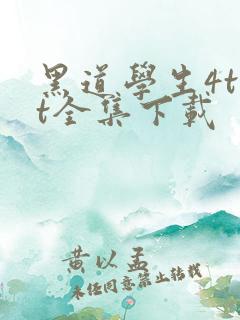 黑道學生4t
t全集下載
黄以孟
未经同意禁止转载